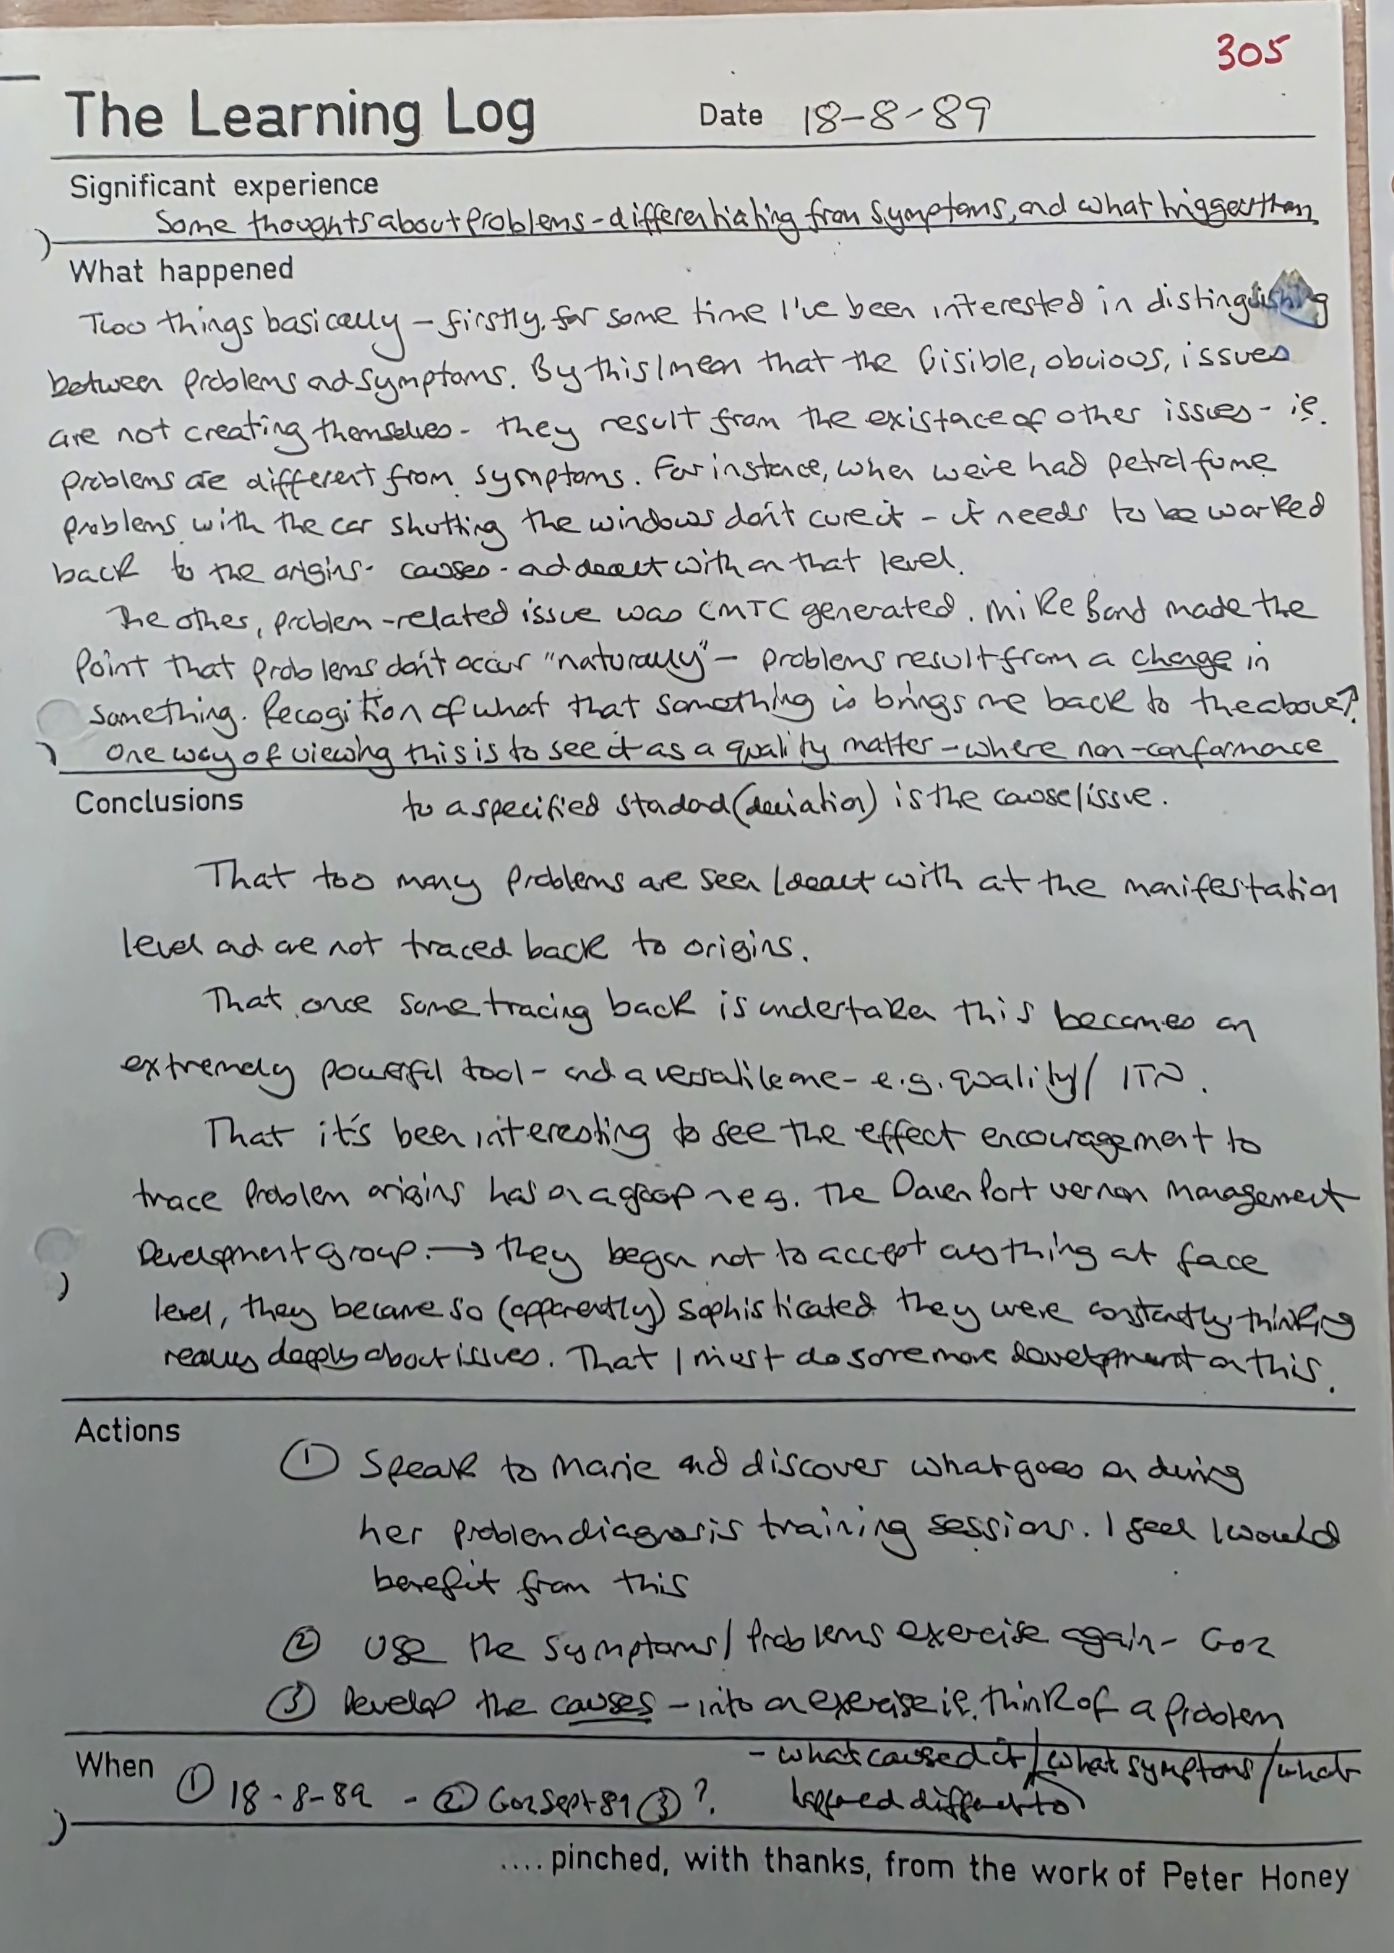 305
The Learning Log Date 18-8-89
Significant experience
Some thoughts about problems - differentiating from symptoms, and what triggers them
What happened
Two things basically - firstly, for some time I've been interested in distinguishing
between problems and symptoms. By this I mean that the visible, obvious, issues
are not creating themselves - they result from the existace of other issues - ie.
problems are different from symptoms. For instance, when we've had petrol fume
problems with the car shutting the windows don't cure it - it needs to be worked
back to the origins - causes - and dealt with on that level.
The other, problem-related issue was CMTC generated. Mike Bond made the
point that problems don't occur "naturally" - problems result from a change in
something. Recogition of what that something is brings me back to the above?
One way of viewing this is to see it as a quality matter - where non-conformance
Conclusions to a specified standard (deviation) is the cause/issue.
That too many problems are seen/dealt with at the manifestation
level and are not traced back to origins.
That once some tracing back is undertaken this becomes an
extremely powerful tool - and a versatile one - e.g. quality/ITN.
That it's been interesting to see the effect encouragement to
trace problem origins has on a group - eg. the Davenport Vernon Management
Development group. → they began not to accept anything at face
level, they became so (apparently) sophisticated they were constantly thinking
really deeply about issues. That I must do some more development on this.
Actions
① Speak to Marie and discover what goes on during
her problem diagnosis training sessions. I feel I would
benefit from this
② Use the symptoms/problems exercise again - Go2
③ Develop the causes - into an exercise ie. think of a problem
- what caused it/what symptoms/what
When ① 18-8-89 - ② Go2 Sept 89 ③ ?. happened different to
.... pinched, with thanks, from the work of Peter Honey